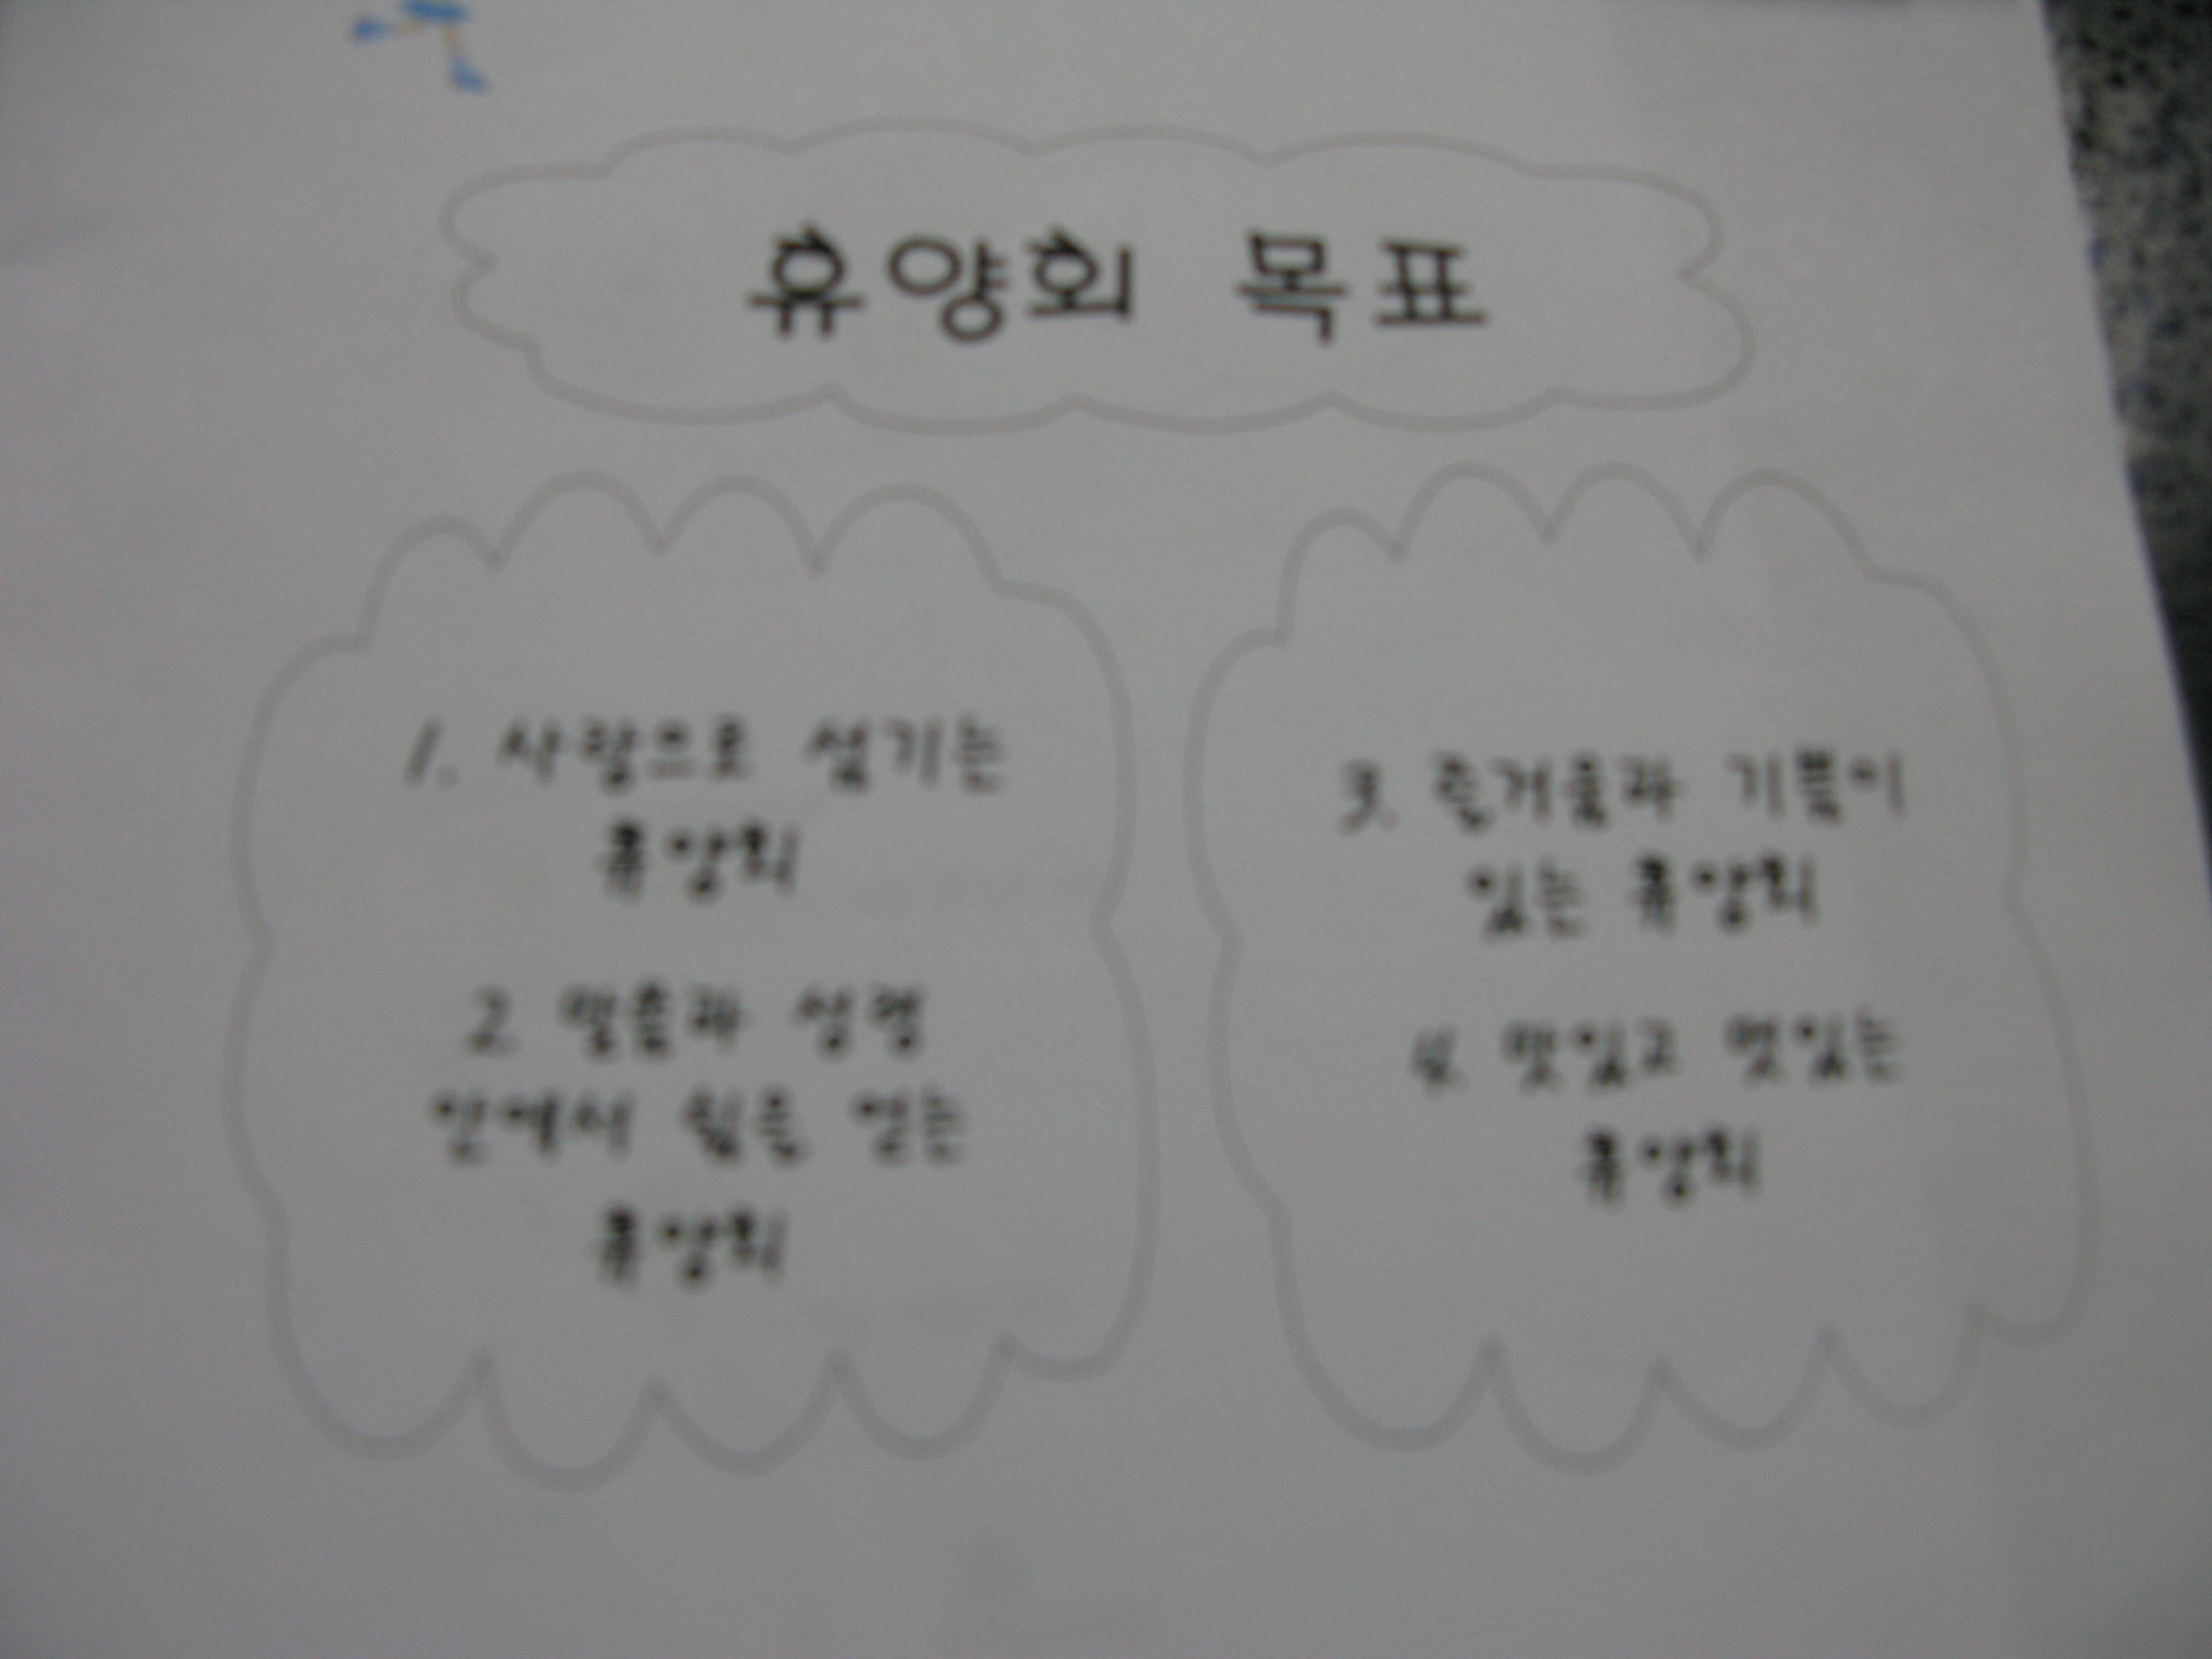 휴양회 목표
1. 사랑으로 섬기는
휴양회
2. 말씀과 성령
안에서 쉼을 얻는
휴양회
3. 즐거움과 기쁨이
있는 휴양회
4. 맛있고 멋있는
휴양회